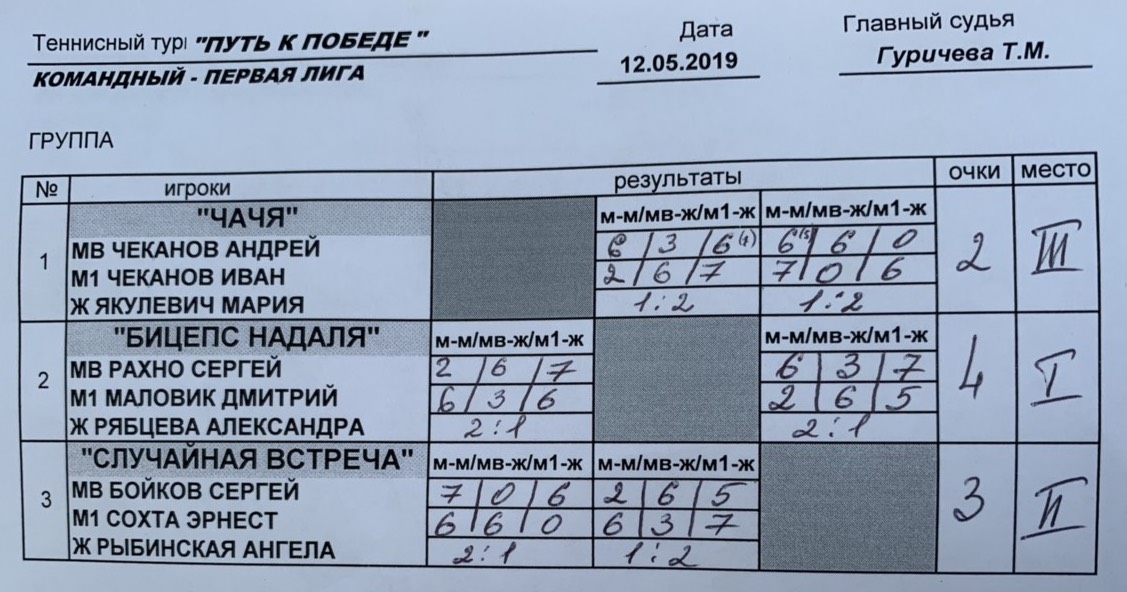 Теннисный тур "ПУТЬ К ПОБЕДЕ" Дата Главный судья
КОМАНДНЫЙ - ПЕРВАЯ ЛИГА 12.05.2019 Гуричева Т.М.
ГРУППА
№ игроки результаты очки место
"ЧАЧЯ" м-м/мв-ж/м1-ж м-м/мв-ж/м1-ж
1 МВ ЧЕКАНОВ АНДРЕЙ 6/3/6(4) 6(5)/6/0 2 III
М1 ЧЕКАНОВ ИВАН 2/6/7 7/0/6
Ж ЯКУЛЕВИЧ МАРИЯ 1:2 1:2
"БИЦЕПС НАДАЛЯ" м-м/мв-ж/м1-ж м-м/мв-ж/м1-ж
2 МВ РАХНО СЕРГЕЙ 2/6/7 6/3/7 4 I
М1 МАЛОВИК ДМИТРИЙ 6/3/6 2/6/5
Ж РЯБЦЕВА АЛЕКСАНДРА 2:1 2:1
"СЛУЧАЙНАЯ ВСТРЕЧА" м-м/мв-ж/м1-ж м-м/мв-ж/м1-ж
3 МВ БОЙКОВ СЕРГЕЙ 7/0/6 2/6/5 3 II
М1 СОХТА ЭРНЕСТ 6/6/0 6/3/7
Ж РЫБИНСКАЯ АНГЕЛА 2:1 1:2